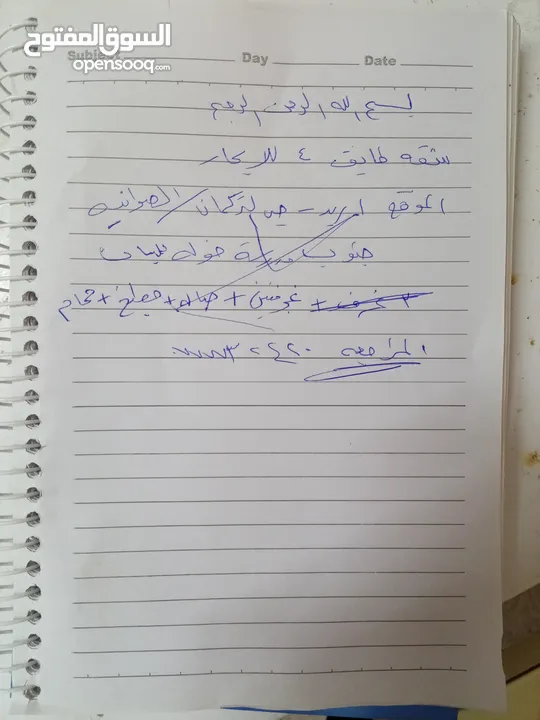 السوق المفتوح
opensooq.com
Subject Day Date
بسم الله الرحمن الرحيم
شقه طابق ٤ للايجار
الموقع اربد - حي التركمان / الصوانيه
جنوب مدرسة خوله للبنات
غرفتين + صاله + مطبخ + حمام
المراجعه